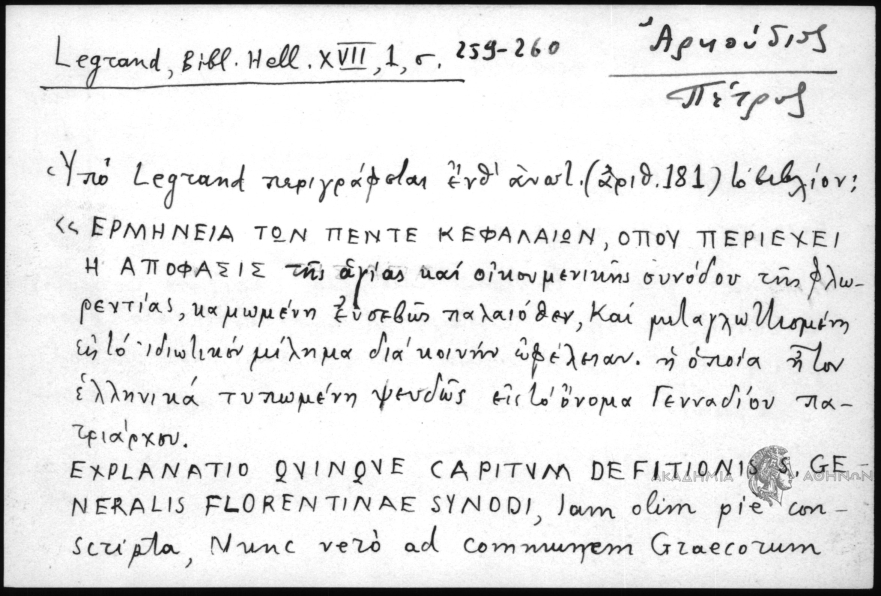 Legrand, Bibl. Hell. XVII, 1, σ. 259-260
Ἀρκούδιος
Πέτρος
Ὑπὸ Legrand περιγράφεται ἔνθ' ἀνωτ. (ἀριθ. 181) τὸ βιβλίον:
« ΕΡΜΗΝΕΙΑ ΤΩΝ ΠΕΝΤΕ ΚΕΦΑΛΑΙΩΝ, ΟΠΟΥ ΠΕΡΙΕΧΕΙ
Η ΑΠΟΦΑΣΙΣ τῆς ἁγίας καὶ οἰκουμενικῆς συνόδου τῆς Φλω-
ρεντίας, καμωμένη εὐσεβῶς παλαιόθεν, Καὶ μεταγλωττισμένη
εἰς τὸ ἰδιωτικόν μίλημα διὰ κοινήν ὠφέλειαν. ἡ ὁποία ἦτον
ἑλληνικά τυπωμένη ψευδῶς εἰς τὸ ὄνομα Γενναδίου πα-
τριάρχου.
EXPLANATIO QVINQVE CAPITVM DEFITIONIS S. GE-
NERALIS FLORENTINAE SYNODI, Iam olim pie con-
scripta, Nunc verò ad communem Graecorum
ΑΚΑΔΗΜΙΑ ΑΘΗΝΩΝ